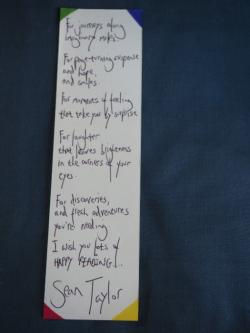 For journeys along
imaginary miles.
For page-turning suspense
and hope,
and smiles.
For moments of feeling
that take you by surprise
For laughter
that leaves brightness
in the corners of your
eyes.
For discoveries,
and fresh adventures
you're needing
I wish you lots of
HAPPY READING!..
Sean Taylor